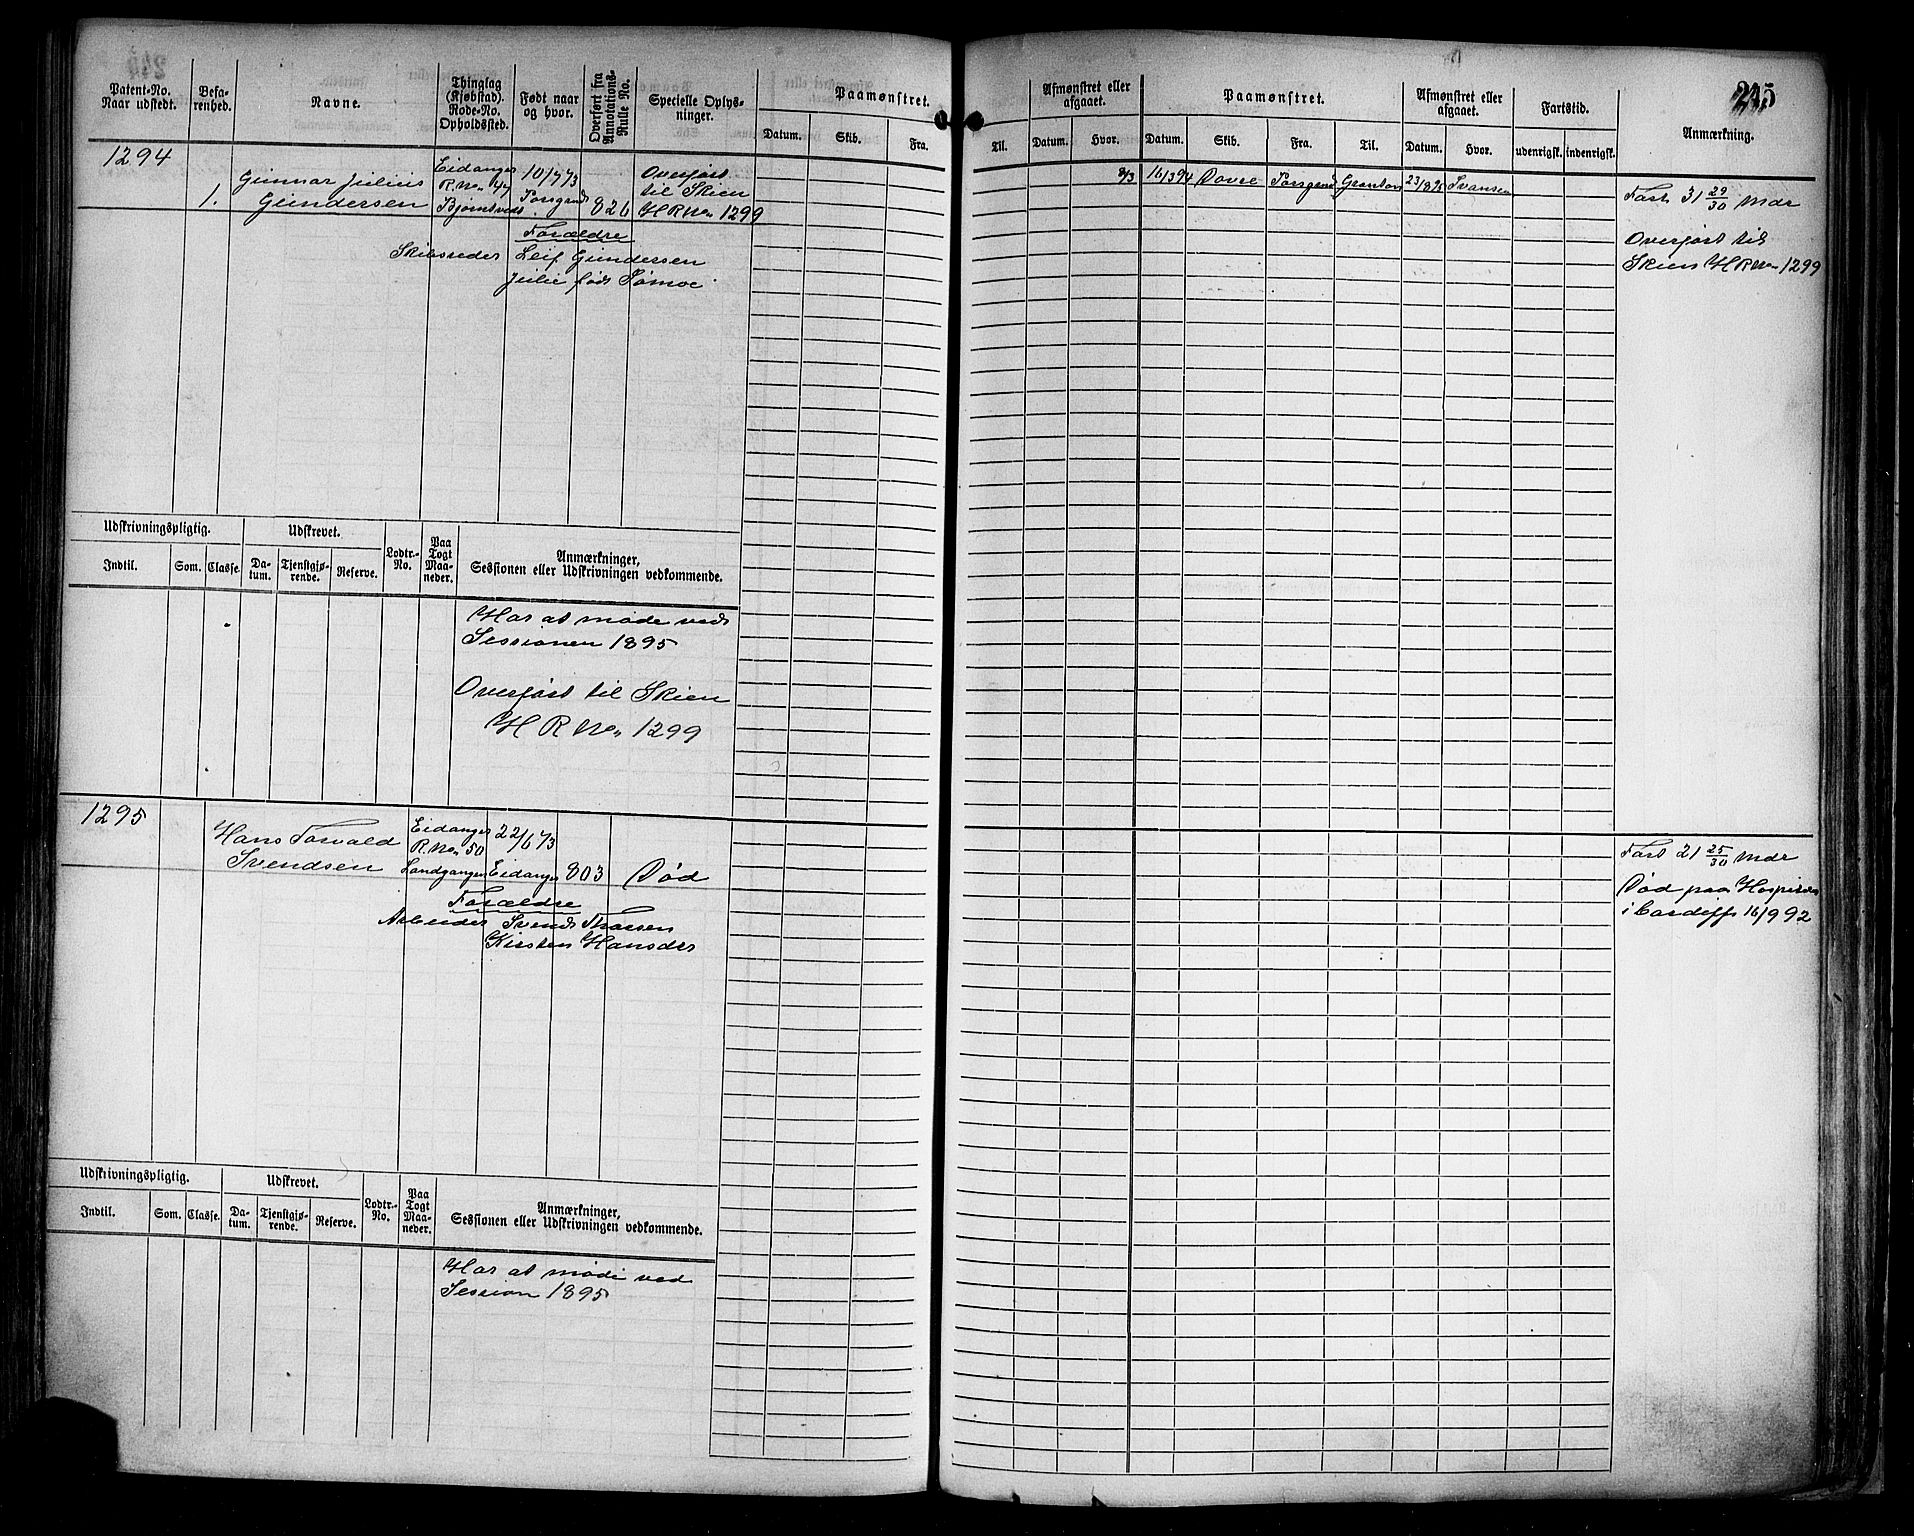 245
Patent-No.
Naar udstedt.
Befa-
renhed.
Navne.
Thinglag
(Kjøbstad).
Rode-No.
Opholdssted.
Født naar
og hvor.
Overført fra
Annotations-
Rulle No.
Specielle Oplys-
ninger.
Paamønstret.
Datum.
Skib.
Fra.
Til.
Afmønstret eller
afgaaet.
Datum.
Hvor.
Paamønstret.
Datum.
Skib.
Fra.
Til.
Afmønstret eller
afgaaet.
Datum.
Hvor.
Fartstid.
udenrigsk.
indenrigsk.
Anmærkning.
1294
1.
Gunnar Julius
Gundersen
Eidanger
R No 47
Bjørntvedt
10/7 73
Porsgrund
826
Overført
til Skien
H R No 1299
Forældre
Skibsreder Leif Gundersen
Julie født
16/3 94
Dovre
Porsgrund
Granton
23/8 95
Svansen
Fart 31 29/30 Mdr
Overført til
Skien H R No 1299
Udskrivningspligtig.
Udskrevet.
Indtil.
Som.
Classe.
Da-
tum.
Tjenstgjø-
rende.
Reserve.
Lodtr.-
No.
Paa
Togt
Maa-
neder.
Anmærkninger,
Sessionen eller Udskrivningen vedkommende.
Har at møde ved
Sessionen 1895
Overført til Skien
H R No 1299
1295
Hans Torvald
Svendsen
Eidanger
R. No 50
Landgangen
22/6 73
Eidanger
803
Død
Forældre
Arbeider Svend Thorsen
Kirsten Hansdr
Fart 21 25/30 Mdr
Død paa Hospitalet
i Cardiff 16/9 92
Udskrivningspligtig.
Udskrevet.
Indtil.
Som.
Classe.
Da-
tum.
Tjenstgjø-
rende.
Reserve.
Lodtr.-
No.
Paa
Togt
Maa-
neder.
Anmærkninger,
Sessionen eller Udskrivningen vedkommende.
Har at møde ved
Session 1895